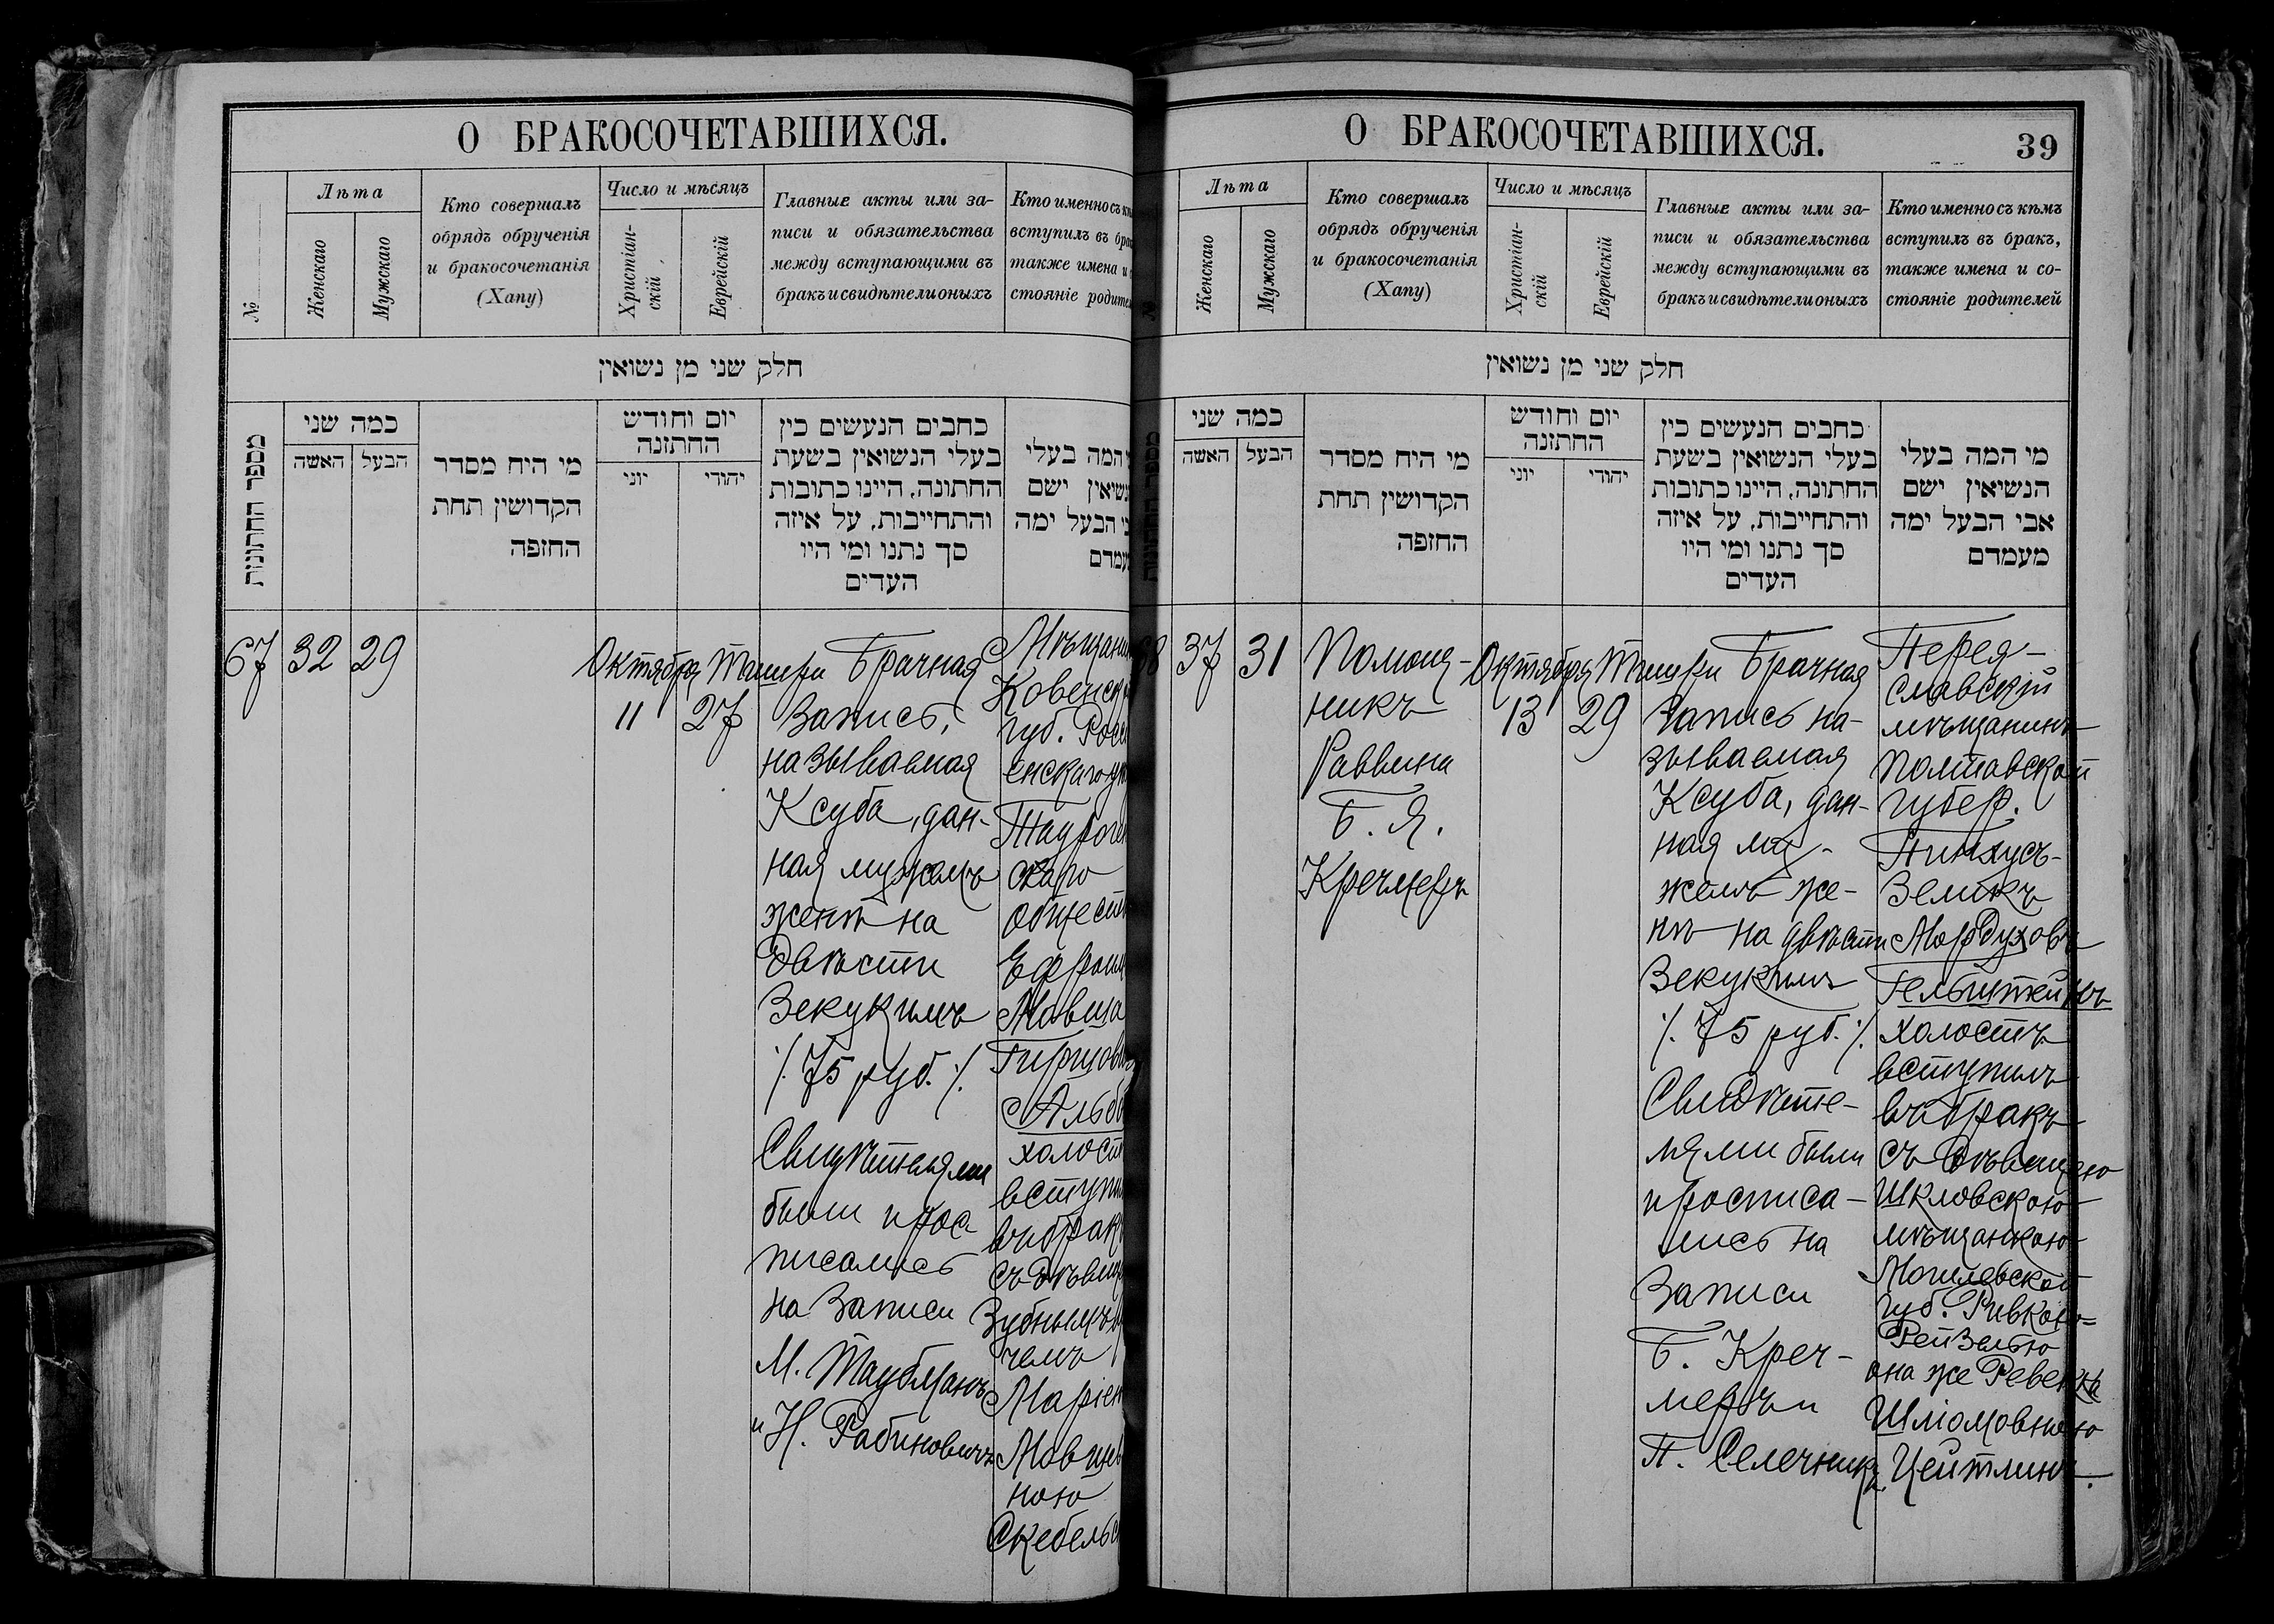 О БРАКОСОЧЕТАВШИХСЯ.
№
Лѣта
Женскаго
Мужскаго
Кто совершалъ
обрядъ обрученія
и бракосочетанія
(Хапу)
Число и мѣсяцъ
Христіан-
скій
Еврейскій
Главные акты или за-
писи и обязательства
между вступающими въ
бракъ и свидѣтели оныхъ
Кто именно съ
вступилъ въ
также имена и
стояніе
חלק שני מן נשואין
מספר החתונות
כמה שני
האשה
הבעל
מי היח מסדר
הקדושין תחת
החופה
יום וחודש
החתונה
יוני
יהודי
כתבים הנעשים כין
בעלי הנשואין בשעת
החתונה, היינו כתובות
והתחייבות, על איזה
סך נתנו ומי היו
העדים
המה בעלי
ישם
הבעל ימה
67
32
29
Октября
11
Тишри
27
Брачная
Запись,
называемая
Ксуба, дан-
ная мужемъ
женѣ на
двѣсти
Зекукимъ
/. 75 руб. /.
Свидѣтелями
были и рос-
писались
на Записи
М. Таубманъ
и Н. Рабиновичъ
губ.
скаго
Мовша
вступи
съ
чемъ
ною
О БРАКОСОЧЕТАВШИХСЯ.
39
Лѣта
Женскаго
Мужскаго
Кто совершалъ
обрядъ обрученія
и бракосочетанія
(Хапу)
Число и мѣсяцъ
Христіан-
скій
Еврейскій
Главные акты или за-
писи и обязательства
между вступающими въ
бракъ и свидѣтели оныхъ
Кто именно съ кѣмъ
вступилъ въ бракъ,
также имена и со-
стояніе родителей
חלק שני מן נשואין
כמה שני
האשה
הבעל
מי היח מסדר
הקדושין תחת
החופה
יום וחודש
החתונה
יוני
יהודי
כתבים הנעשים כין
בעלי הנשואין בשעת
החתונה, היינו כתובות
והתחייבות, על איזה
סך נתנו ומי היו
העדים
מי המה בעלי
הנשיאין ישם
אבי הבעל ימה
מעמדם
68
37
31
Помощ-
никъ
Раввина
Б. Я.
Кречмеръ
Октября
13
Тишри
29
Брачная
Запись на-
зываемая
Ксуба, дан-
ная му-
жемъ же-
нѣ на двѣсти
Зекукимъ
/. 75 руб. /.
Свидѣте-
лями были
и росписа-
лись на
Записи
Б. Креч-
меръ и
П. Селечникъ.
Перея-
славскій
мѣщанинъ
Полтавской
губер.
Пинхусъ-
Зеликъ
Мордуховъ
Гельштейнъ
холостъ
вступилъ
въ бракъ
съ дѣвицею
Шкловскою
мѣщанкою
Могилевской
губ. Ривкою=
Рейзелью
она же Ревекка
Шліомовною
Цейтлинъ.